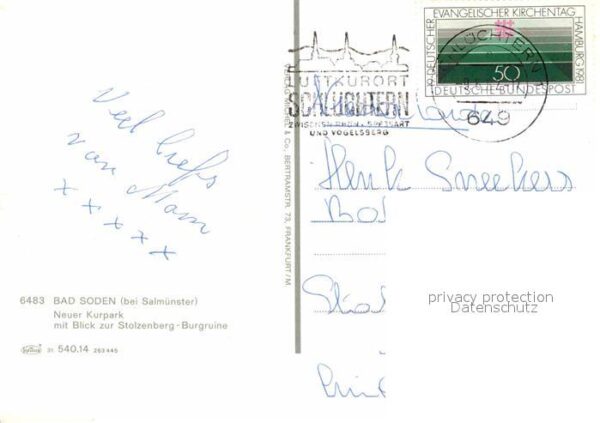 19. DEUTSCHER EVANGELISCHER KIRCHENTAG HAMBURG 1981
50
DEUTSCHE BUNDESPOST
SCHLÜCHTERN
649
LUFTKURORT
SCHLÜCHTERN
ZWISCHEN RHÖN - SPESSART
UND VOGELSBERG
Veel liefs
van Mam
x x x x x
Henk Sneekers
& Co., BERTRAMSTR. 73, FRANKFURT/M.
privacy protection
Datenschutz
6483 BAD SODEN (bei Salmünster)
Neuer Kurpark
mit Blick zur Stolzenberg-Burgruine
31 540.14 263 445